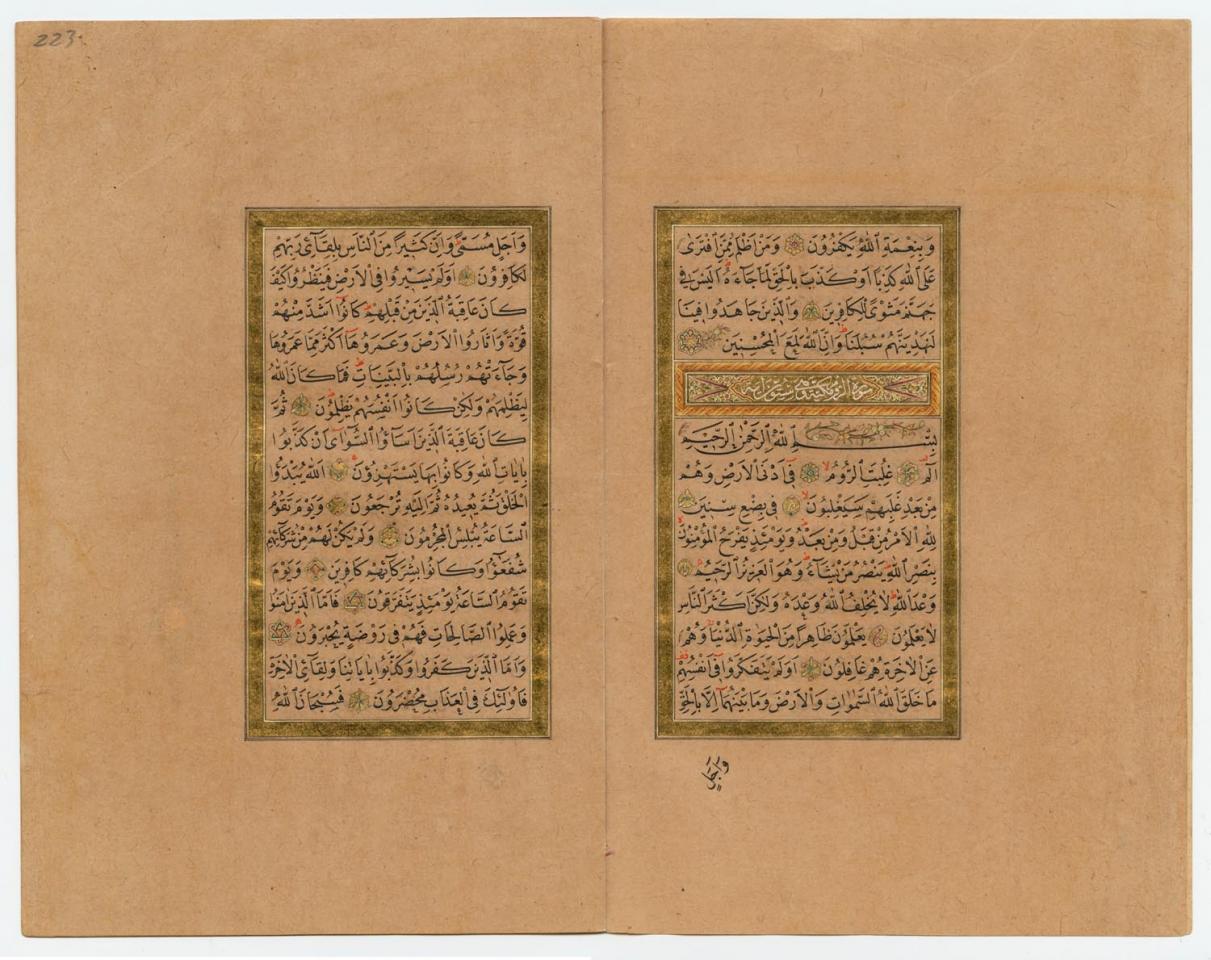 وَبِنِعْمَةِ اللّٰهِ يَكْفُرُونَ وَمَنْ اَظْلَمُ مِمَّنِ افْتَرٰى
عَلَى اللّٰهِ كَذِبًا اَوْ كَذَّبَ بِالْحَقِّ لَمَّا جَاءَهُ اَلَيْسَ فِى
جَهَنَّمَ مَثْوًى لِلْكَافِرِينَ وَالَّذِينَ جَاهَدُوا فِينَا
لَنَهْدِيَنَّهُمْ سُبُلَنَا وَاِنَّ اللّٰهَ لَمَعَ الْمُحْسِنِينَ
سورة الروم مكية وهى ستون اية
بِسْمِ اللّٰهِ الرَّحْمٰنِ الرَّحِيمِ
الٓمٓ غُلِبَتِ الرُّومُ فِى اَدْنَى الْاَرْضِ وَهُمْ
مِنْ بَعْدِ غَلَبِهِمْ سَيَغْلِبُونَ فِى بِضْعِ سِنِينَ
لِلّٰهِ الْاَمْرُ مِنْ قَبْلُ وَمِنْ بَعْدُ وَيَوْمَئِذٍ يَفْرَحُ الْمُؤْمِنُونَ
بِنَصْرِ اللّٰهِ يَنْصُرُ مَنْ يَشَاءُ وَهُوَ الْعَزِيزُ الرَّحِيمُ
وَعْدَ اللّٰهِ لَا يُخْلِفُ اللّٰهُ وَعْدَهُ وَلٰكِنَّ اَكْثَرَ النَّاسِ
لَا يَعْلَمُونَ يَعْلَمُونَ ظَاهِرًا مِنَ الْحَيٰوةِ الدُّنْيَا وَهُمْ
عَنِ الْاٰخِرَةِ هُمْ غَافِلُونَ اَوَلَمْ يَتَفَكَّرُوا فِى اَنْفُسِهِمْ
مَا خَلَقَ اللّٰهُ السَّمٰوَاتِ وَالْاَرْضَ وَمَا بَيْنَهُمَا اِلَّا بِالْحَقِّ
وَاَجَلٍ
223
وَاَجَلٍ مُسَمًّى وَاِنَّ كَثِيرًا مِنَ النَّاسِ بِلِقَائِ رَبِّهِمْ
لَكَافِرُونَ اَوَلَمْ يَسِيرُوا فِى الْاَرْضِ فَيَنْظُرُوا كَيْفَ
كَانَ عَاقِبَةُ الَّذِينَ مِنْ قَبْلِهِمْ كَانُوا اَشَدَّ مِنْهُمْ
قُوَّةً وَاَثَارُوا الْاَرْضَ وَعَمَرُوهَا اَكْثَرَ مِمَّا عَمَرُوهَا
وَجَاءَتْهُمْ رُسُلُهُمْ بِالْبَيِّنَاتِ فَمَا كَانَ اللّٰهُ
لِيَظْلِمَهُمْ وَلٰكِنْ كَانُوا اَنْفُسَهُمْ يَظْلِمُونَ ثُمَّ
كَانَ عَاقِبَةَ الَّذِينَ اَسَاؤُا السُّوآٰى اَنْ كَذَّبُوا
بِاٰيَاتِ اللّٰهِ وَكَانُوا بِهَا يَسْتَهْزِؤُنَ اَللّٰهُ يَبْدَؤُا
الْخَلْقَ ثُمَّ يُعِيدُهُ ثُمَّ اِلَيْهِ تُرْجَعُونَ وَيَوْمَ تَقُومُ
السَّاعَةُ يُبْلِسُ الْمُجْرِمُونَ وَلَمْ يَكُنْ لَهُمْ مِنْ شُرَكَائِهِمْ
شُفَعٰؤُا وَكَانُوا بِشُرَكَائِهِمْ كَافِرِينَ وَيَوْمَ
تَقُومُ السَّاعَةُ يَوْمَئِذٍ يَتَفَرَّقُونَ فَاَمَّا الَّذِينَ اٰمَنُوا
وَعَمِلُوا الصَّالِحَاتِ فَهُمْ فِى رَوْضَةٍ يُحْبَرُونَ
وَاَمَّا الَّذِينَ كَفَرُوا وَكَذَّبُوا بِاٰيَاتِنَا وَلِقَائِ الْاٰخِرَةِ
فَاُولٰئِكَ فِى الْعَذَابِ مُحْضَرُونَ فَسُبْحَانَ اللّٰهِ